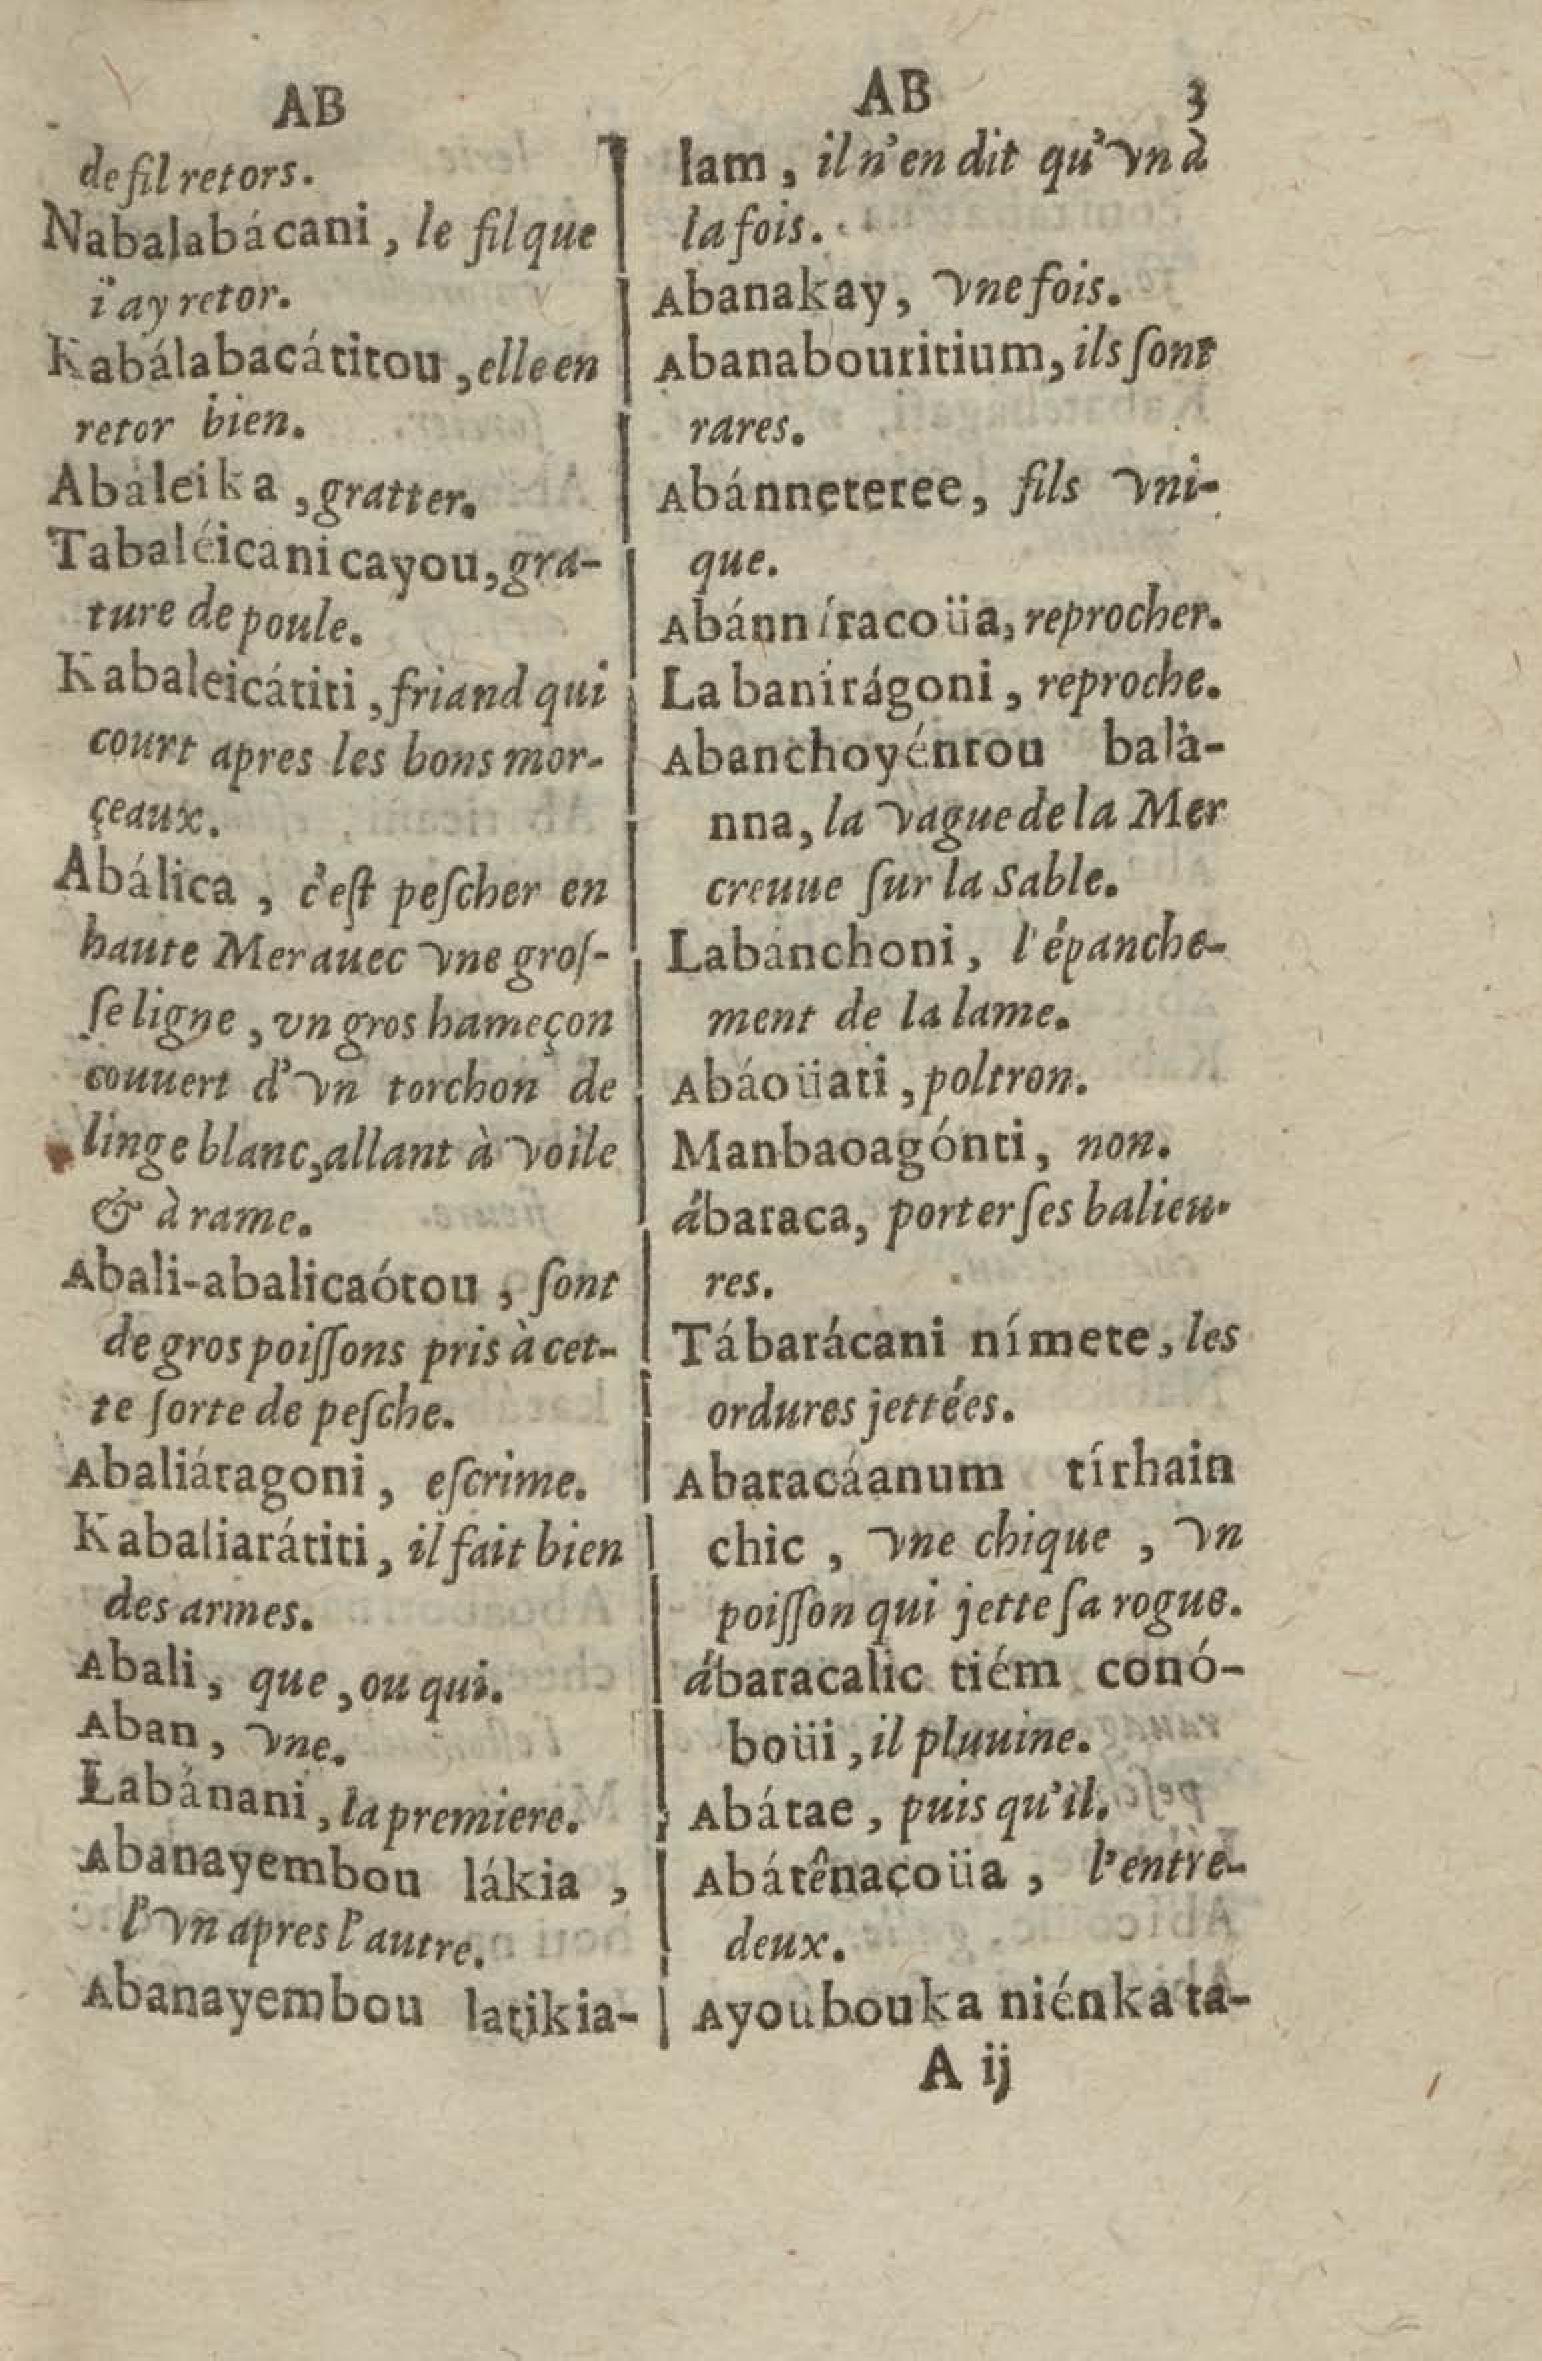 AB
de fil retors.
Nabalabácani, le fil que
i'ay retor.
Kabálabacátitou, elle en
retor bien.
Abáleika, gratter.
Tabaléicani cayou, gra-
ture de poule.
Kabaleicátiti, friand qui
court apres les bons mor-
çeaux.
Abálica, c'eſt peſcher en
haute Mer auec vne groſ-
ſe ligne, vn gros hameçon
couuert d'vn torchon de
linge blanc, allant à voile
& à rame.
Abali-abalicaótou, ſont
de gros poiſſons pris à cet-
te ſorte de peſche.
Abaliáragoni, eſcrime.
Kabaliarátiti, il fait bien
des armes.
Abali, que, ou qui.
Aban, vne.
Labánani, la premiere.
Abanayembou lákia,
l'vn apres l'autre.
Abanayembou laţikia-
AB 3
lam, il n'en dit qu'vn à
la fois.
Abanakay, vne fois.
Abanabouritium, ils ſont
rares.
Abánnęteree, fils vni-
que.
Abánníracoüa, reprocher.
Labanirágoni, reproche.
Abanchoyéntou balà-
nna, la vague de la Mer
creuue ſur la Sable.
Labánchoni, l'épanche-
ment de la lame.
Abáoüati, poltron.
Manbaoagónti, non.
ábaraca, porter ſes balieu-
res.
Tábarácani nímete, les
ordures jettées.
Abaracáanum tírhain
chic, vne chique, vn
poiſſon qui jette ſa rogue.
ábaracalic tiém conó-
boüi, il pluuine.
Abátae, puis qu'il.
Abátênaçoüa, l'entre-
deux.
Ayoubouka niénkata-
A ij